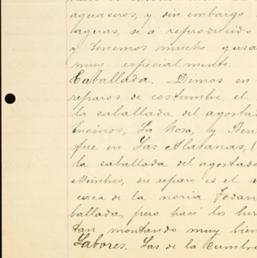 aguaseros, y sin embargo
lagunas, se a reproducido
y tenemos mucho gusan
muy especialmente.
Caballada. Demos en
reparos de costumbre el
la caballada del agostad
Encinos, La Rosa, y Ben
fue en Las Alasanas, (
la caballada del agostado
Moinhos, su reparo es el
cerca de la noria
ballada, pero haci los bur
tan montando muy bien
Labores. Las de la Cumbre